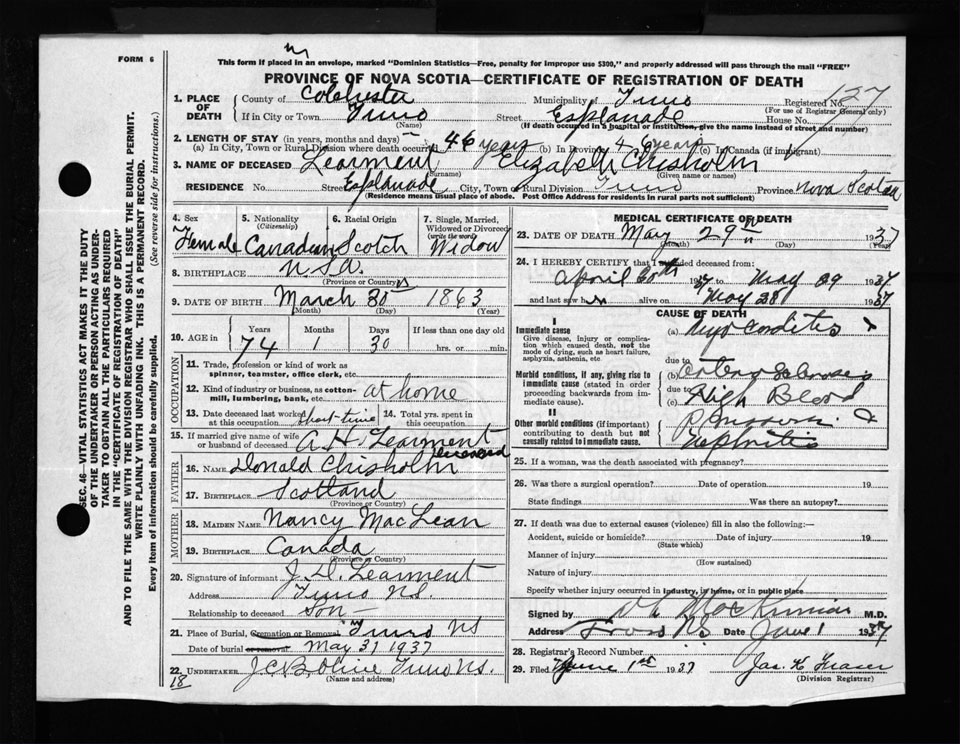 FORM 6
This form if placed in an envelope, marked "Dominion Statistics—Free, penalty for improper use $300," and properly addressed will pass through the mail "FREE"
PROVINCE OF NOVA SCOTIA—CERTIFICATE OF REGISTRATION OF DEATH
1. PLACE OF DEATH County of Colchester Municipality of Truro Registered No. 127
(For use of Registrar General only)
If in City or Town Truro Street Esplanade House No.
(Name) (If death occurred in a hospital or institution, give the name instead of street and number)
2. LENGTH OF STAY (in years, months and days)
(a) In City, Town or Rural Division where death occurred 46 years (b) In Province years (c) In Canada (if immigrant)
3. NAME OF DECEASED Learment Elizabeth Chisholm
(Given name or names)
RESIDENCE No. Street Esplanade City, Town or Rural Division Truro Province Nova Scotia
(Residence means usual place of abode. Post Office Address for residents in rural parts not sufficient)
4. Sex Female
5. Nationality (Citizenship) Canadian
6. Racial Origin Scotch
7. Single, Married, Widowed or Divorced (write the word) Widow
8. BIRTHPLACE N.S.
(Province or Country)
9. DATE OF BIRTH March 30 1863
(Month) (Day) (Year)
10. AGE in Years 74 Months 1 Days 30 If less than one day old hrs. or min.
OCCUPATION
11. Trade, profession or kind of work as spinner, teamster, office clerk, etc.
12. Kind of industry or business, as cotton-mill, lumbering, bank, etc. at home
13. Date deceased last worked at this occupation short time 14. Total yrs. spent in this occupation
15. If married give name of wife or husband of deceased A. H. Learment deceased
FATHER
16. NAME Donald Chisholm
17. BIRTHPLACE Scotland
(Province or Country)
MOTHER
18. MAIDEN NAME Nancy MacLean
19. BIRTHPLACE Canada
(Province or Country)
20. Signature of informant J. D. Learment
Address Truro NS.
Relationship to deceased Son
21. Place of Burial, Cremation or Removal Truro NS
Date of burial or removal May 31 1937
22. UNDERTAKER Truro NS.
(Name and address)
18
MEDICAL CERTIFICATE OF DEATH
23. DATE OF DEATH May 29th 1937
(Month) (Day) (Year)
24. I HEREBY CERTIFY that I attended deceased from:
April 1937 to May 29 1937
and last saw her alive on May 28 1937
CAUSE OF DEATH
I
Immediate cause
Give disease, injury or complication which caused death, not the mode of dying, such as heart failure, asphyxia, asthenia, etc
(a) Myocarditis &
due to
Morbid conditions, if any, giving rise to immediate cause (stated in order proceeding backwards from immediate cause).
(b) Arterio Sclerosis
due to
(c) High Blood
II
Other morbid conditions (if important) contributing to death but not causally related to immediate cause.
Pressure &
Nephritis
25. If a woman, was the death associated with pregnancy?
26. Was there a surgical operation? Date of operation 19
State findings Was there an autopsy?
27. If death was due to external causes (violence) fill in also the following:—
Accident, suicide or homicide? Date of injury 19
(State which)
Manner of injury
(How sustained)
Nature of injury
Specify whether injury occurred in industry, in home, or in public place
Signed by MacKinnon M.D.
Address Truro NS Date June 1 1937
28. Registrar's Record Number
29. Filed June 1st 1937 Jas. K. Fraser
(Division Registrar)
SEC. 46—VITAL STATISTICS ACT MAKES IT THE DUTY
OF THE UNDERTAKER OR PERSON ACTING AS UNDER-
TAKER TO OBTAIN ALL THE PARTICULARS REQUIRED
IN THE "CERTIFICATE OF REGISTRATION OF DEATH"
AND TO FILE THE SAME WITH THE DIVISION REGISTRAR WHO SHALL ISSUE THE BURIAL PERMIT.
WRITE PLAINLY WITH UNFADING INK. THIS IS A PERMANENT RECORD.
Every item of information should be carefully supplied. (See reverse side for instructions.)